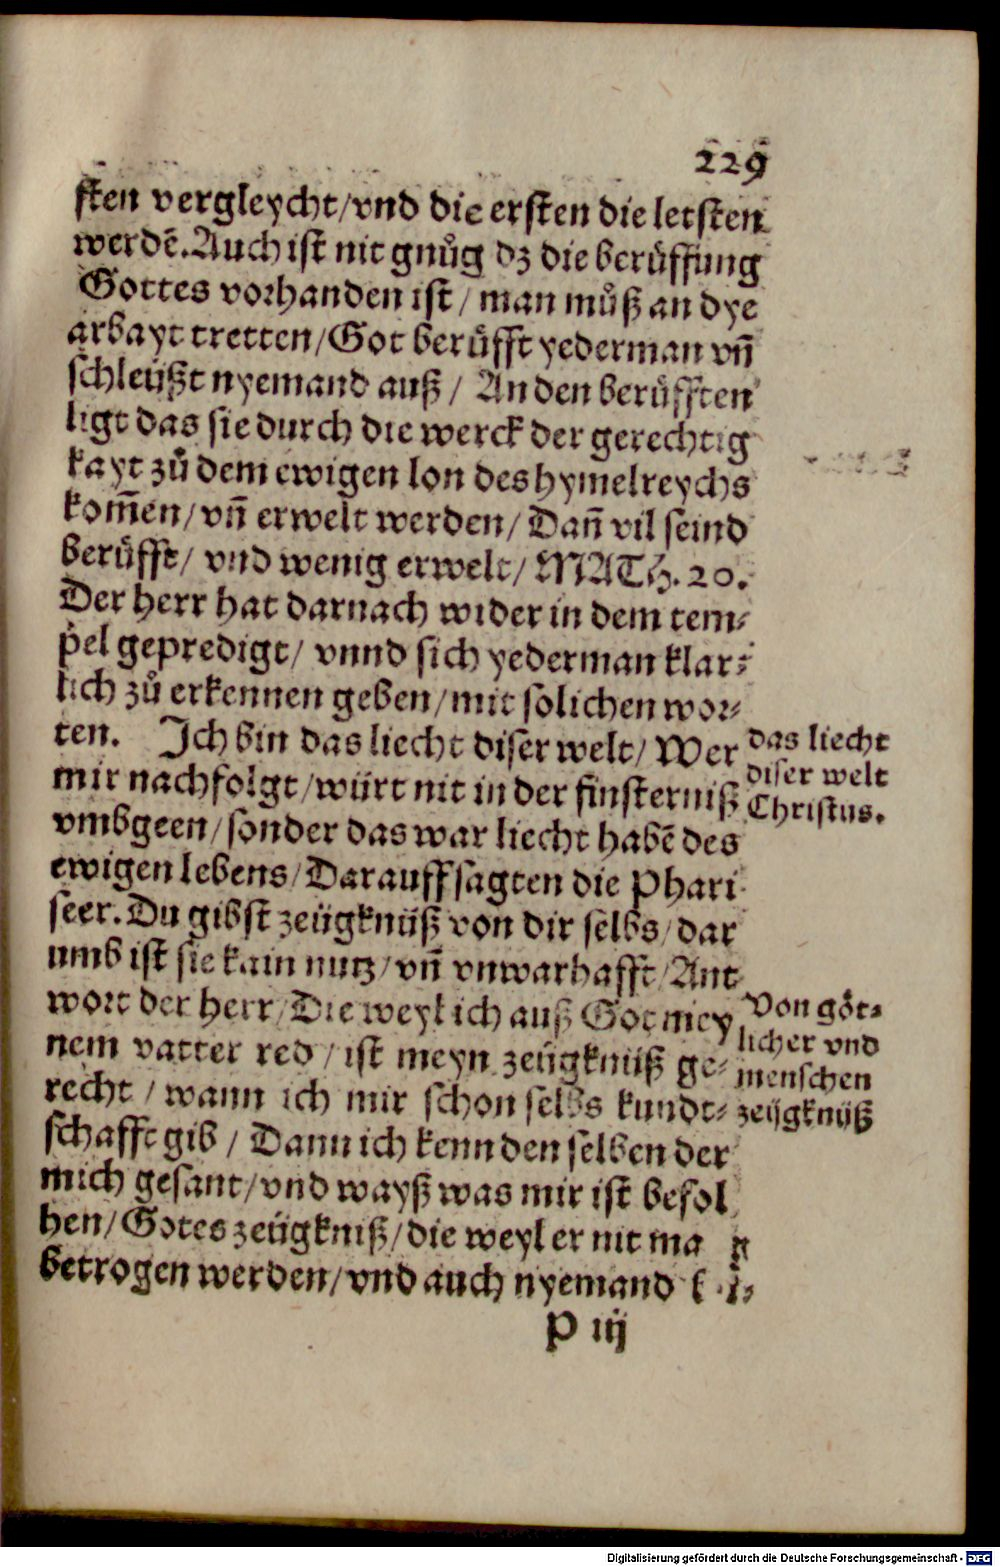 229
sten vergleycht/vnd die ersten die letsten
werdē. Auch ist nit gnůg dz die berůffung
Gottes vorhanden ist / man můß an dye
arbayt tretten/Got berůfft yederman vn̄
schleüßt nyemand auß / An den berůfften
ligt das sie durch die werck der gerechtig
kayt zů dem ewigen lon des hymelreychs
kom̄en/vn̄ erwelt werden/ Dan̄ vil seind
berůfft/ vnd wenig erwelt/ MATH. 20.
Der herr hat darnach wider in dem tem⸗
pel gepredigt/ vnnd sich yederman klar⸗
lich zů erkennen geben/mit solichen wor⸗
ten. Ich bin das liecht diser welt/ Wer
mir nachfolgt/würt nit in der finsterniß
vmbgeen/sonder das war liecht habē des
ewigen lebens/Darauff sagten die Phari
seer. Du gibst zeügknüß von dir selbs/dar
umb ist sie kain nutz/vn̄ vnwarhafft/Ant
wort der herr/Die weyl ich auß Got mey
nem vatter red / ist meyn zeügknüß ge⸗
recht / wann ich mir schon selbs kundt⸗
schafft gib / Dann ich kenn den selben der
mich gesant/vnd wayß was mir ist befol
hen/Gotes zeügkniß/die weyl er nit ma
betrogen werden/vnd auch nyemand
P iij
das liecht
diser welt
Christus.
Von göt⸗
licher vnd
menschen
zeügknüß
Digitalisierung gefördert durch die Deutsche Forschungsgemeinschaft - DFG